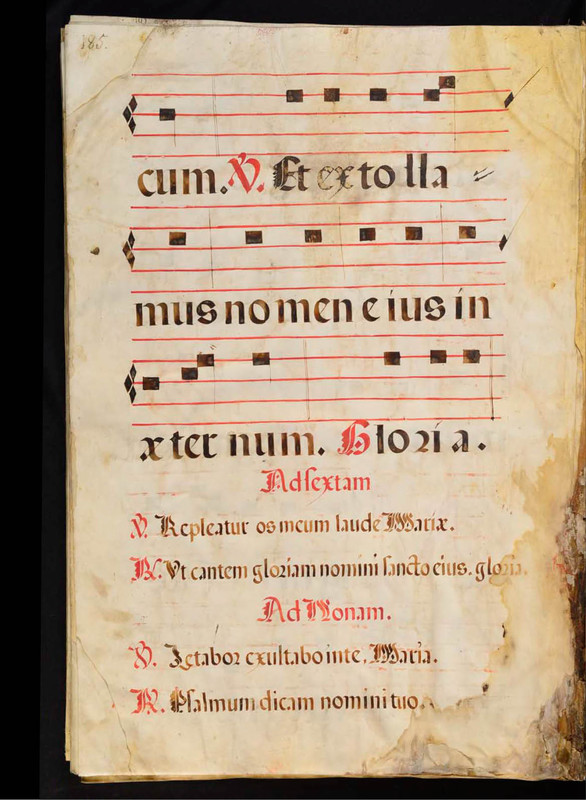 185.
cum. V. Et extolla
mus nomen eius in
æternum. Gloria.
Ad sextam
V. Repleatur os meum laude Mariæ.
R. Ut cantem gloriam nomini sancto eius. gloria.
Ad Nonam.
V. Lætabor exultabo in te, Maria.
R. Psalmum dicam nomini tuo.